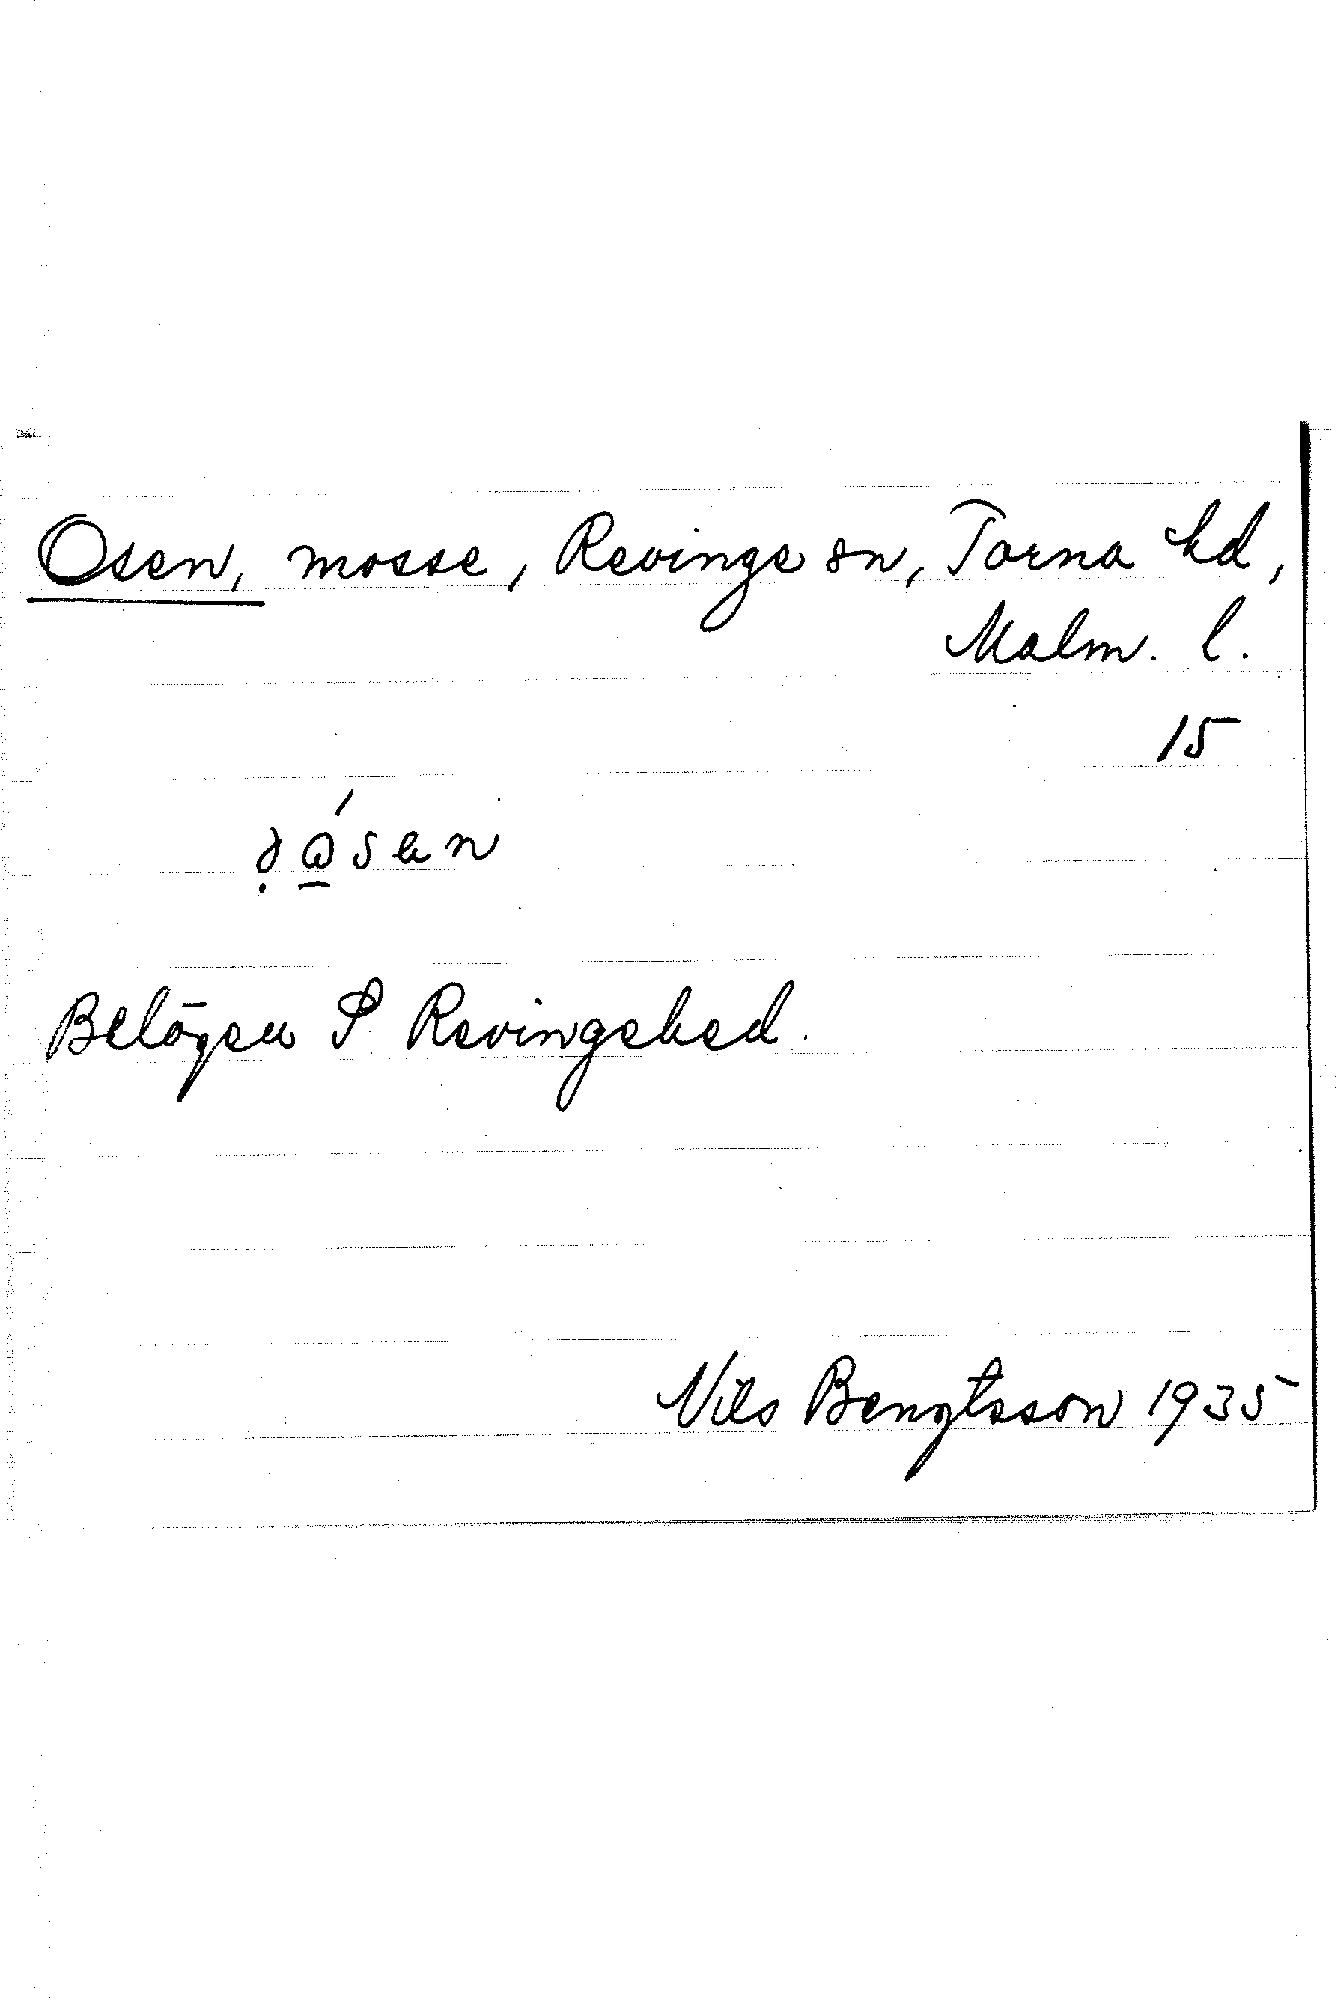 Osen, mosse, Revinge sn, Torna hd,
Malm. l.
15
Belägen S Revingehed.
Nils Bengtsson 1935